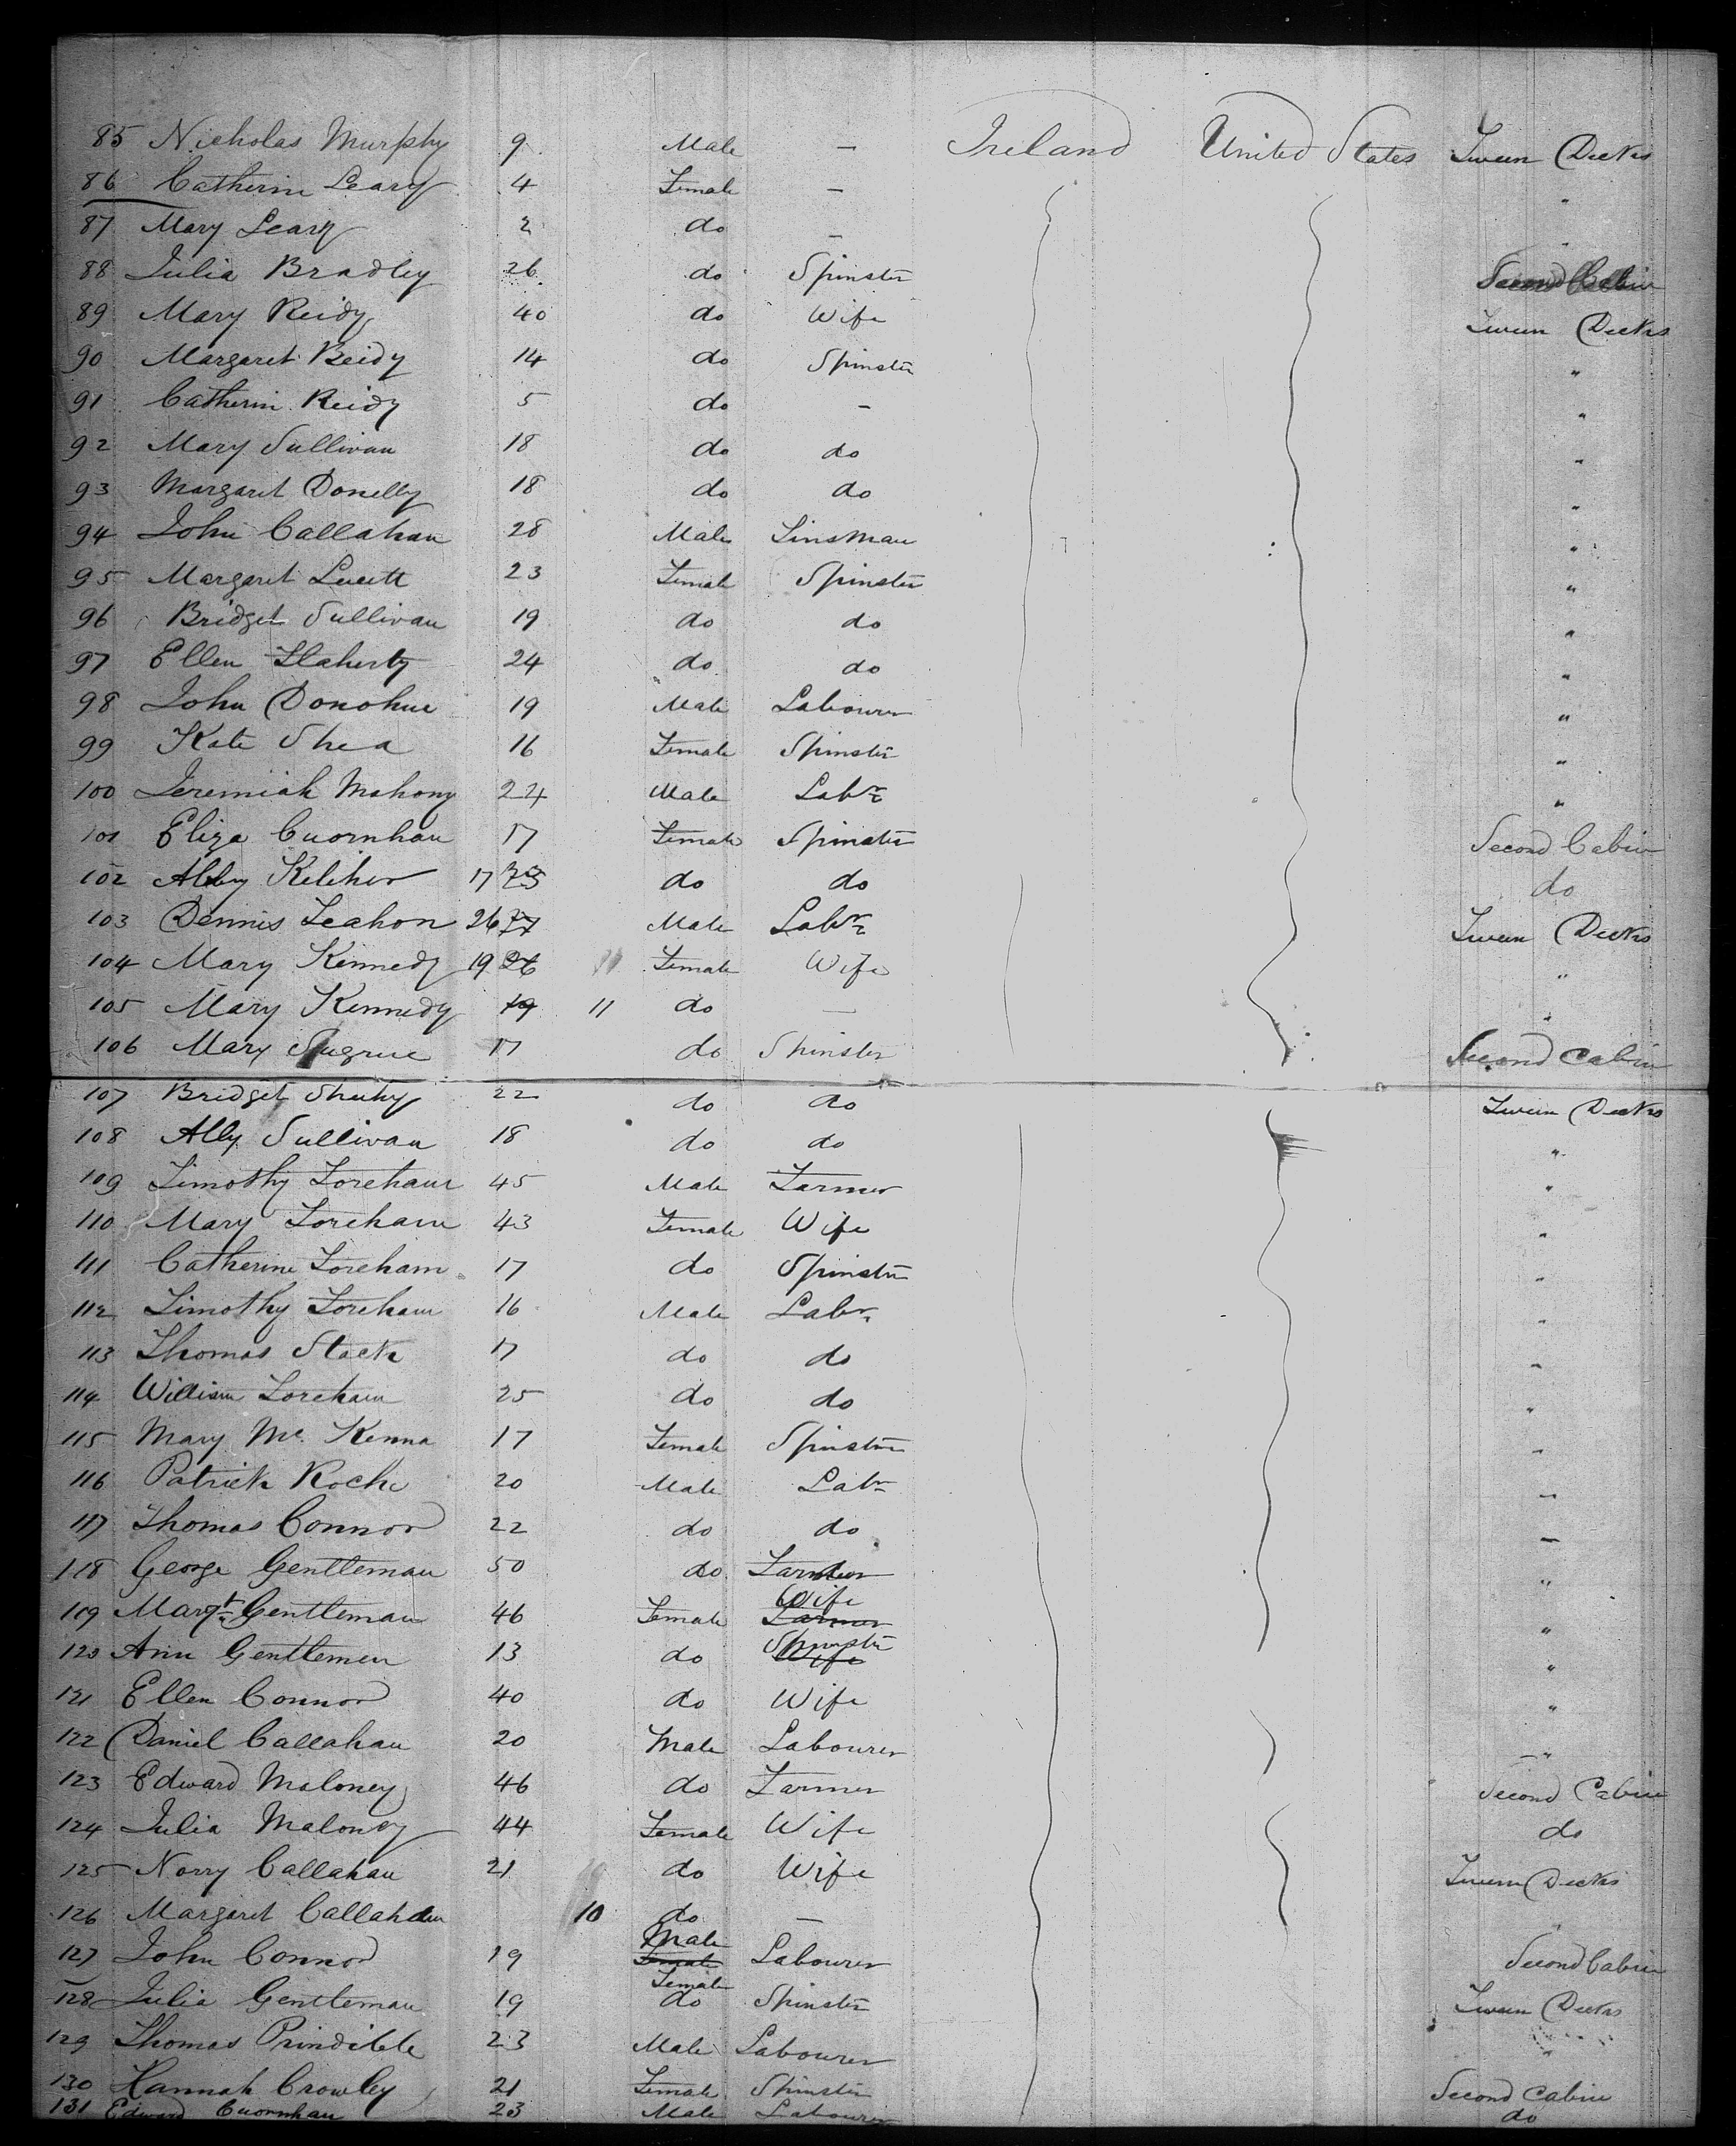 85 Nicholas Murphy 9 Male — Ireland United States Tween Decks
86 Catherin Leary 4 Female — "
87 Mary Leary 2 do — "
88 Julia Bradley 26 do Spinster Second Cabin
89 Mary Reidy 40 do Wife Tween Decks
90 Margaret Reidy 14 do Spinster "
91 Catherin Reidy 5 do — "
92 Mary Sullivan 18 do do "
93 Margaret Donelly 18 do do "
94 John Callahan 28 Male Linsman "
95 Margaret 23 Female Spinster "
96 Bridget Sullivan 19 do do "
97 Ellen Flaherty 24 do do "
98 John Donohue 19 Male Labourer "
99 Kate Shea 16 Female Spinster "
100 Jeremiah Mahony 24 Male Labr "
101 Eliza Cuornhan 17 Female Spinster Second Cabin
102 Abby Keliher 17 do do do
103 Dennis Leahon 26 27 Male Labr Tween Decks
104 Mary Kennedy 19 26 Female Wife "
105 Mary Kennedy 19 11 do — "
106 Mary Sugrue 17 do Spinster Second Cabin
107 Bridget Sheehy 22 do do Tween Decks
108 Ally Sullivan 18 do do "
109 Timothy Foreham 45 Male Farmer "
110 Mary Foreham 43 Female Wife "
111 Catherine Foreham 17 do Spinster "
112 Timothy Foreham 16 Male Labr "
113 Thomas Stack 17 do do "
114 William Foreham 25 do do "
115 Mary Mc. Kenna 17 Female Spinster "
116 Patrick Roche 20 Male Labr "
117 Thomas Connor 22 do do "
118 George Gentleman 50 do Farmer "
119 Margt Gentleman 46 Female Wife Farmer "
120 Ann Gentlemen 13 do Spinster Wife "
121 Ellen Connor 40 do Wife "
122 Daniel Callahan 20 Male Labourer "
123 Edward Maloney 46 do Farmer Second Cabin
124 Julia Maloney 44 Female Wife do
125 Norry Callahan 21 do Wife Tween Decks
126 Margaret Callahan 10 do — "
127 John Connor 19 Male Female Labourer Second Cabin
128 Julia Gentleman 19 Female do Spinster Tween Decks
129 Thomas Prindible 23 Male Labourer "
130 Hannah Crowley 21 Female Spinster Second Cabin
131 Edward Cuornhan 23 Male Labourer do